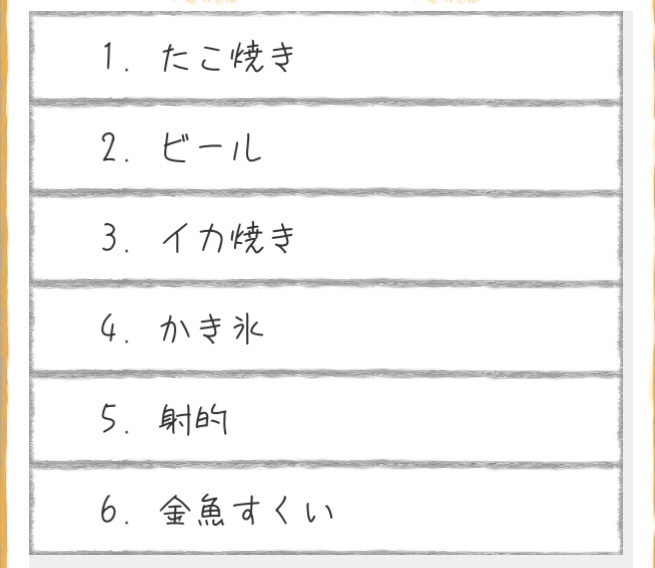 1. たこ焼き
2. ビール
3. イカ焼き
4. かき氷
5. 射的
6. 金魚すくい